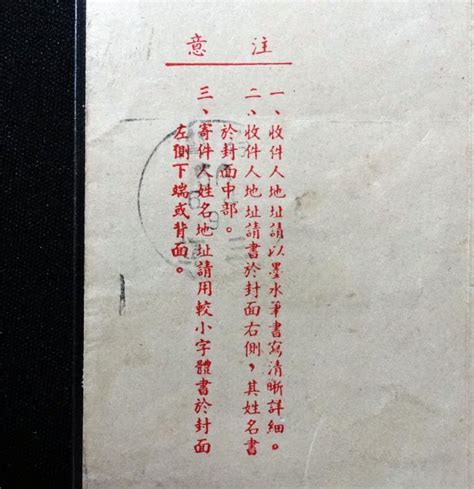 注意
一、收件人地址請以墨水筆書寫清晰詳細。
二、收件人地址請書於封面右側，其姓名書
於封面中部。
三、寄件人姓名地址請用較小字體書於封面
左側下端或背面。